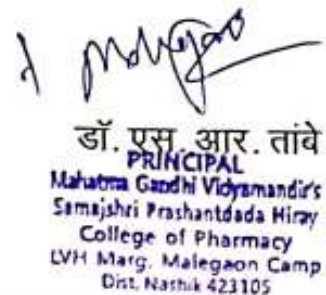 डॉ. एस. आर. तांबे
PRINCIPAL
Mahatma Gandhi Vidyamandir's
Samajshri Prashantdada Hiray
College of Pharmacy
LVH Marg, Malegaon Camp
Dist. Nashik 423105